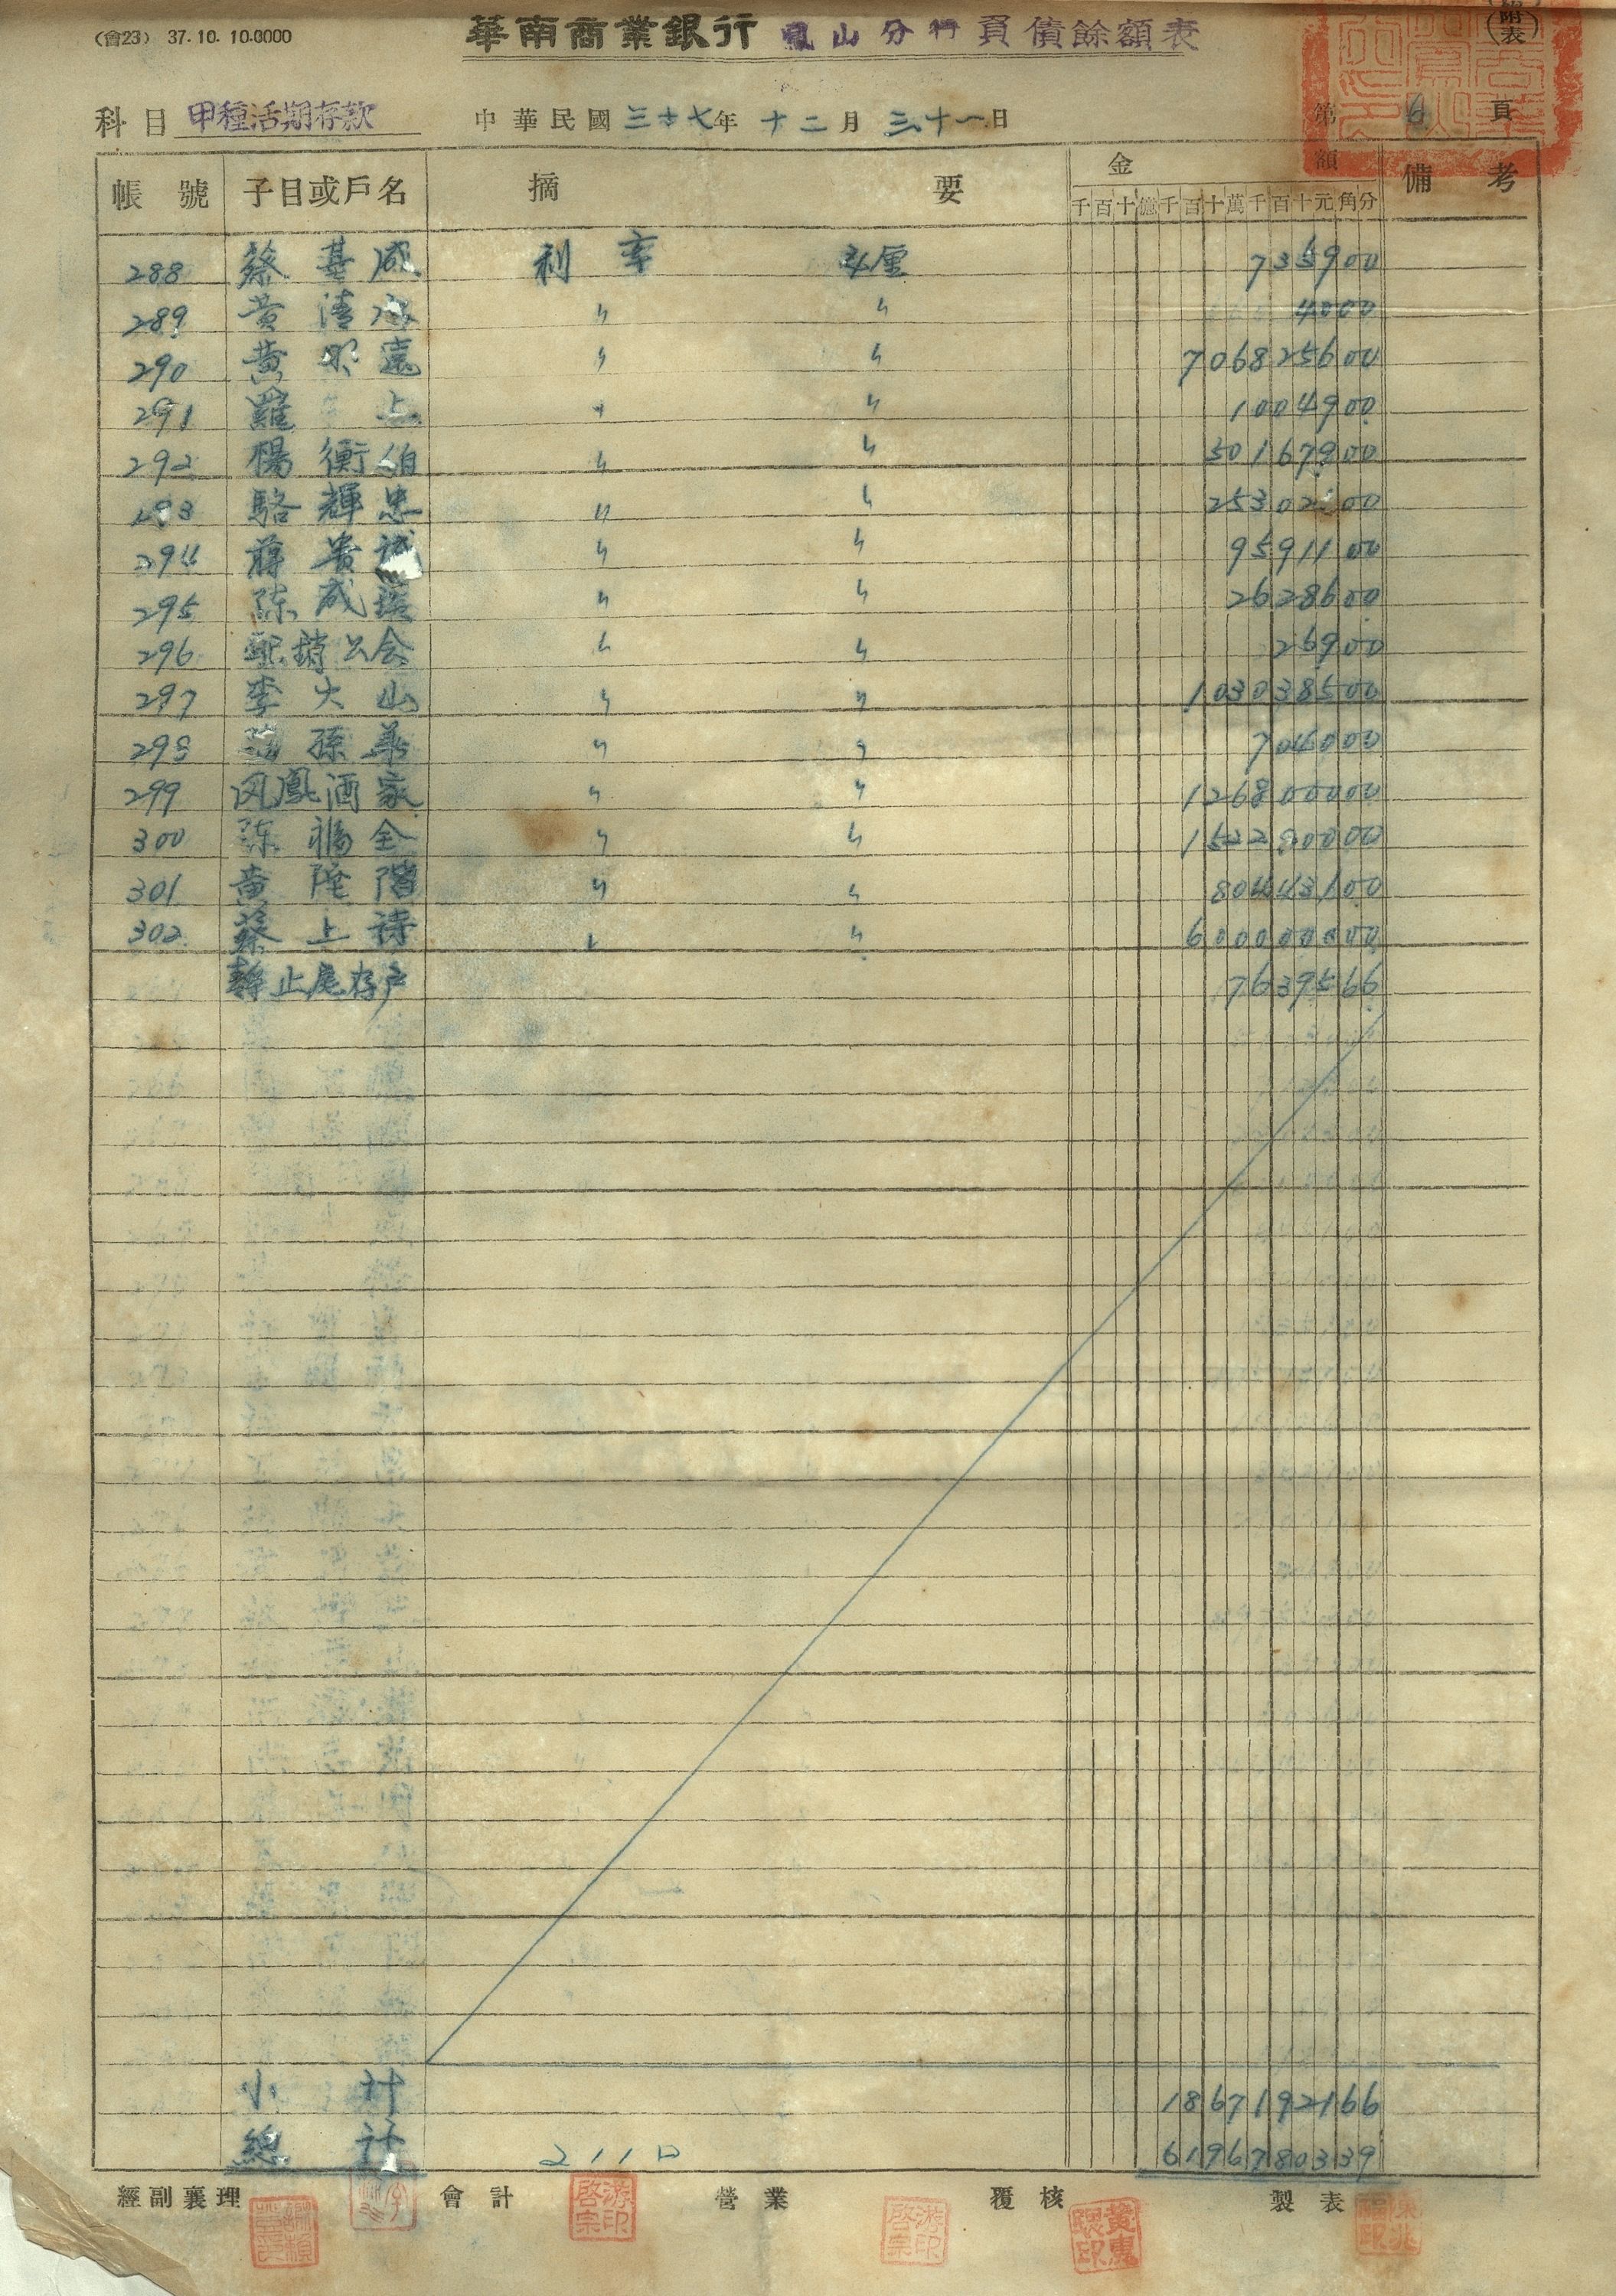 (會23) 37.10.10.0000
華南商業銀行 鳳山分行 負債餘額表
(附表)
科目 甲種活期存款 中華民國三十七年十二月三十一日 第6頁
帳號 子目或戶名 摘要 金額 備考
千百十億千百十萬千百十元角分
288 蔡基成 利率 厘 735900
289 黃清 〃 〃 4000
290 黃明遠 〃 〃 706825600
291 羅 上 〃 〃 1004900
292 楊衡伯 〃 〃 50167900
293 駱輝忠 〃 〃
294 蔣貴誠 〃 〃 9591100
295 陈成 〃 〃 2628600
296 公会 〃 〃 26900
297 李火山 〃 〃 103038500
298 孫華 〃 〃 704000
299 凤凰酒家 〃 〃 126800000
300 陈福全 〃 〃
301 黃陞階 〃 〃 80443100
302 蔡上 〃 〃 600000000
靜止尾存戶 7639566
小計 1867192166
總計 211口 6196780339
經副襄理 會計 營業 覆核 製表
游印啓宗
游印啓宗